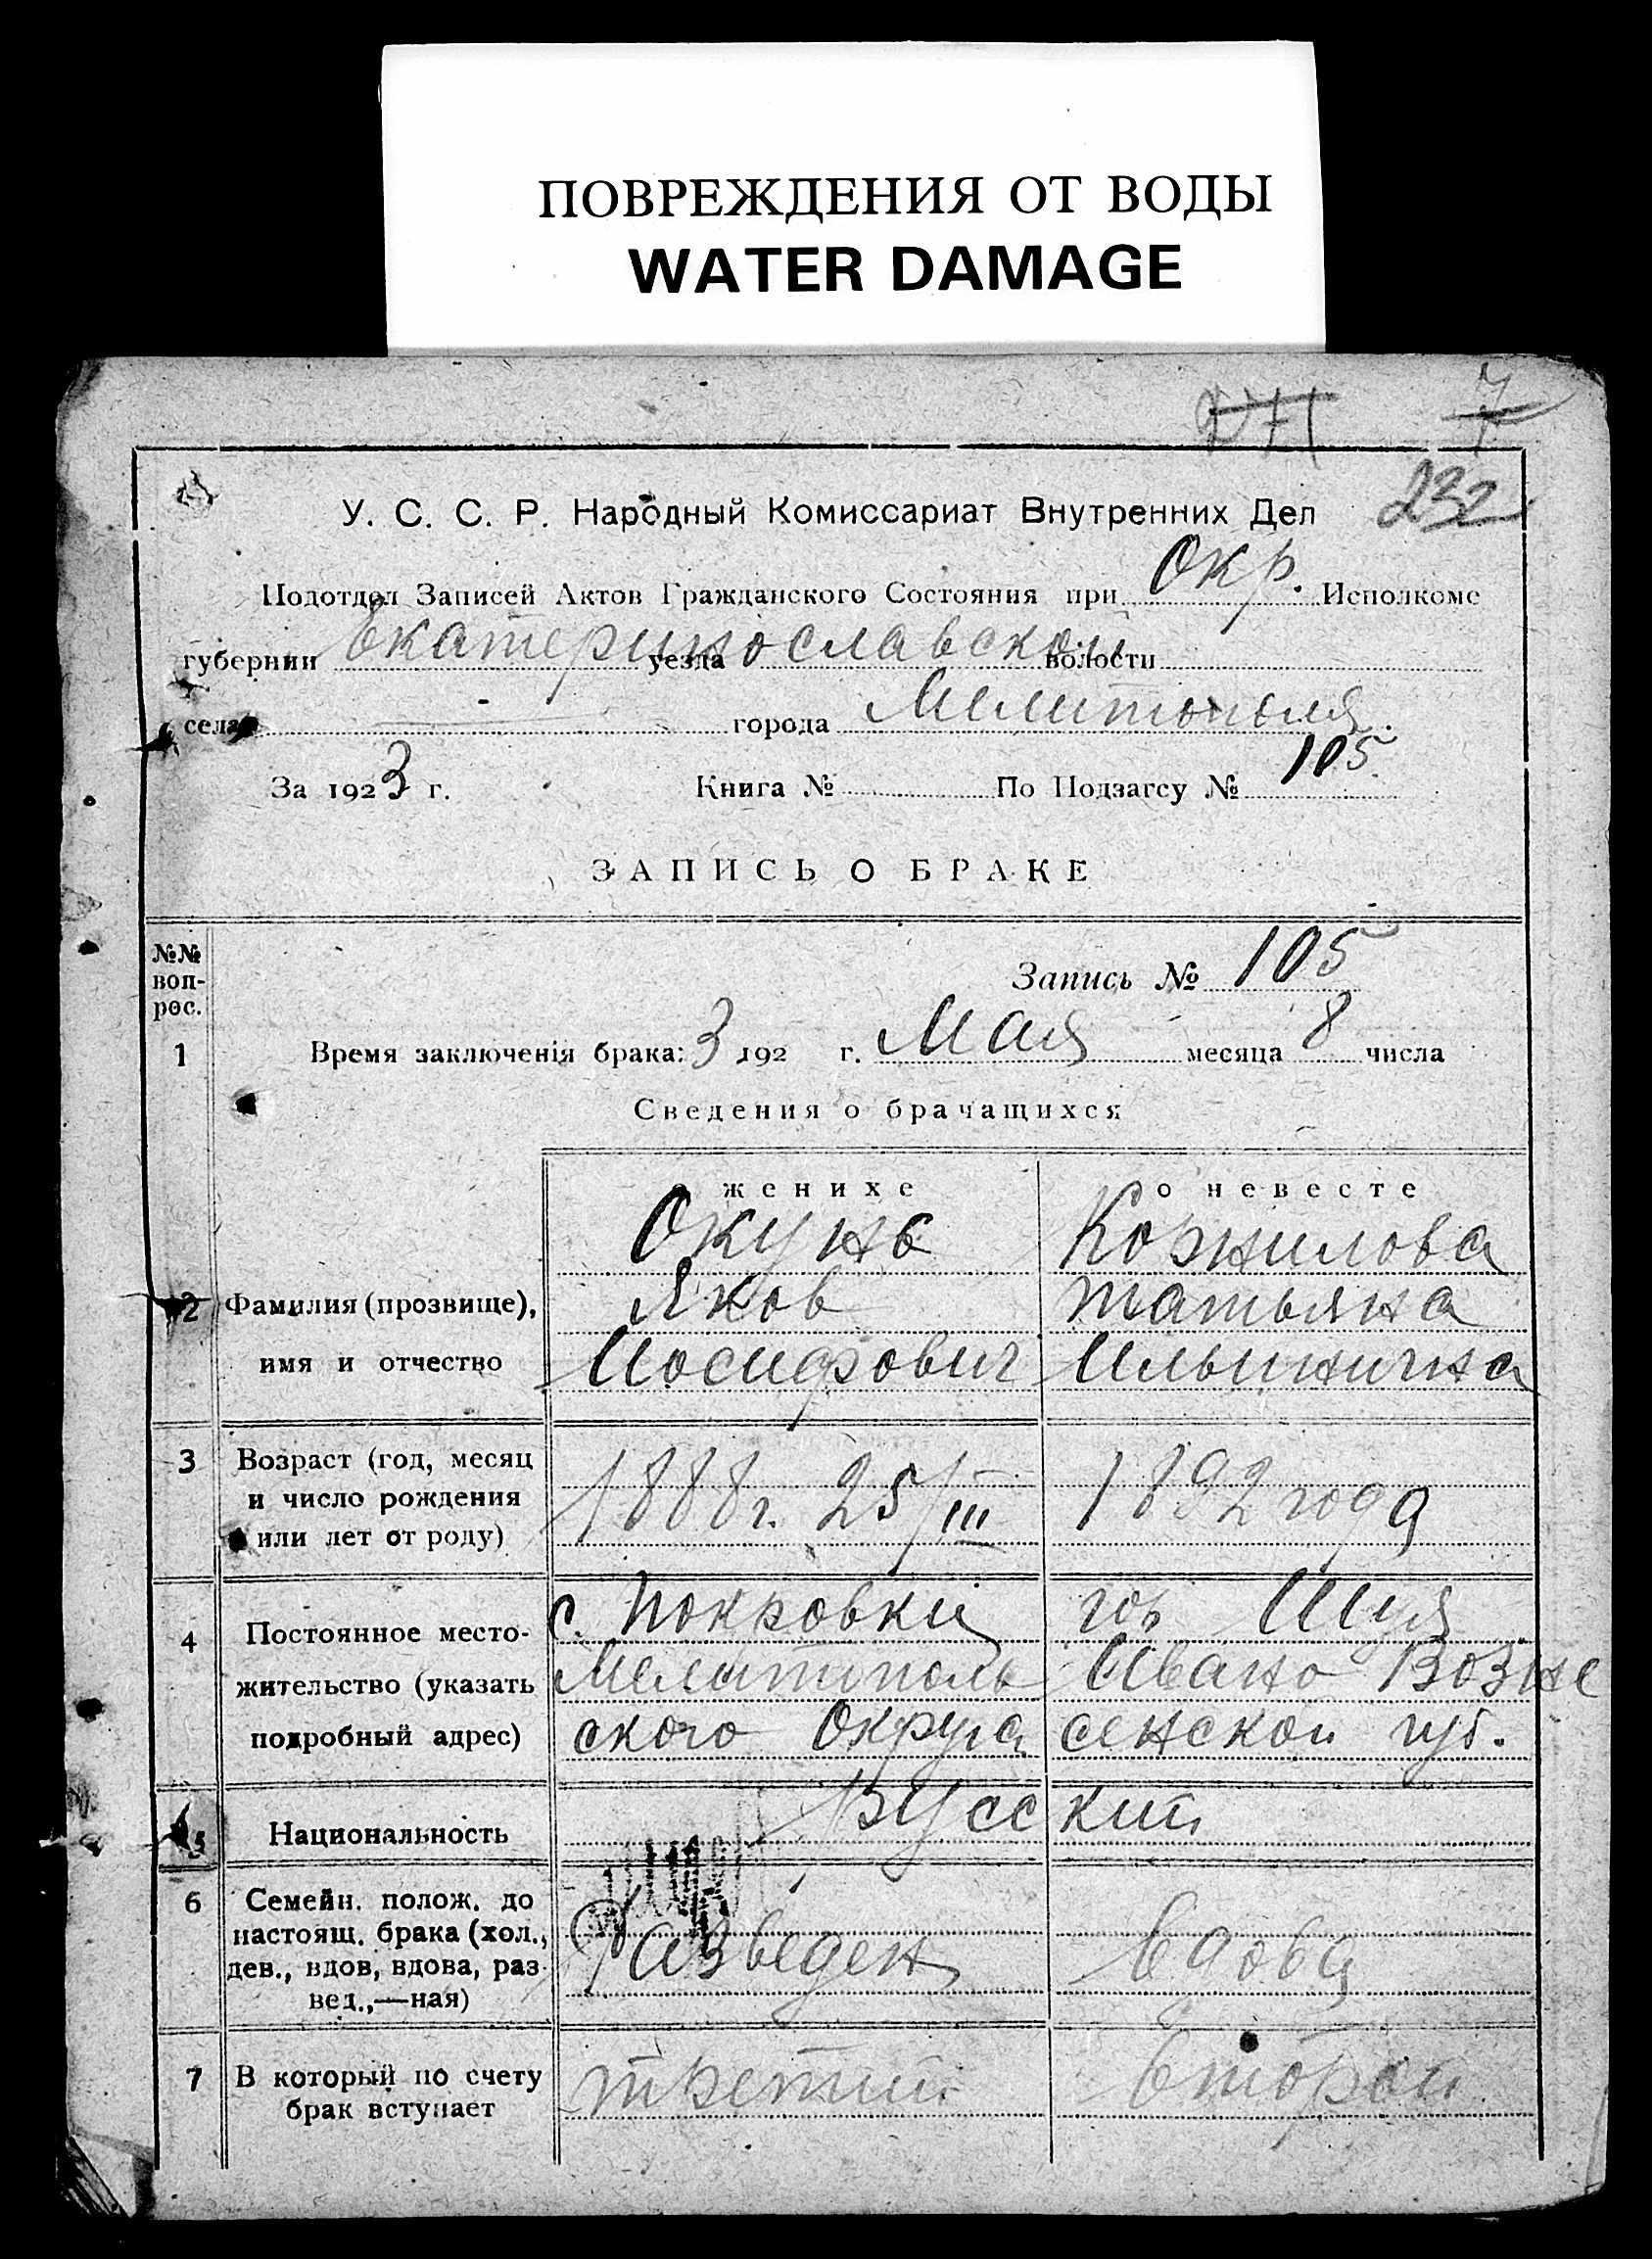 ПОВРЕЖДЕНИЯ ОТ ВОДЫ
WATER DAMAGE
271 7
232
У. С. С. Р. Народный Комиссариат Внутренних Дел
Подотдел Записей Актов Гражданского Состояния при Окр. Исполкоме
губернии Екатеринославской уезда волости
села — города Мелитополя.
За 1923 г. Книга № По Подзагсу № 105
ЗАПИСЬ О БРАКЕ
№№ вопрос.
Запись № 105
1 Время заключенія брака: 3 192 г. Мая месяца 8 числа
Сведения о брачащихся
о женихе о невесте
Окунь Корнилова
2 Фамилия (прозвище), Яков Татьяна
имя и отчество Иосифович Ильинична
3 Возраст (год, месяц
и число рождения 1888 г. 25/III 1892 года
или лет от роду)
4 Постоянное место- с. Покровки гор Шуя
жительство (указать Мелитополь Ивано Возне
подробный адрес) ского Округа сенской губ.
5 Национальность Русский
6 Семейн. полож. до
настоящ. брака (хол.,
дев., вдов, вдова, раз- Разведен вдова
вед.,—ная)
7 В который по счету третий второй
брак вступает